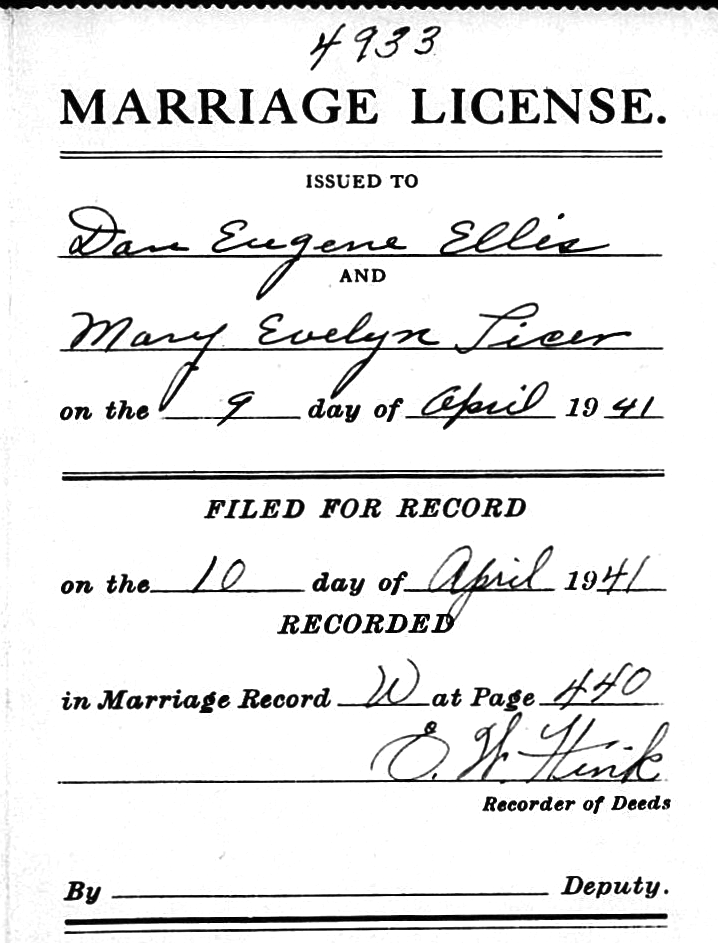 4933
MARRIAGE LICENSE.
ISSUED TO
Dan Eugene Ellis
AND
Mary Evelyn Ticer
on the 9 day of April 1941
FILED FOR RECORD
on the 10 day of April 1941
RECORDED
in Marriage Record W at Page 440
E. W. Hink
Recorder of Deeds
By Deputy.